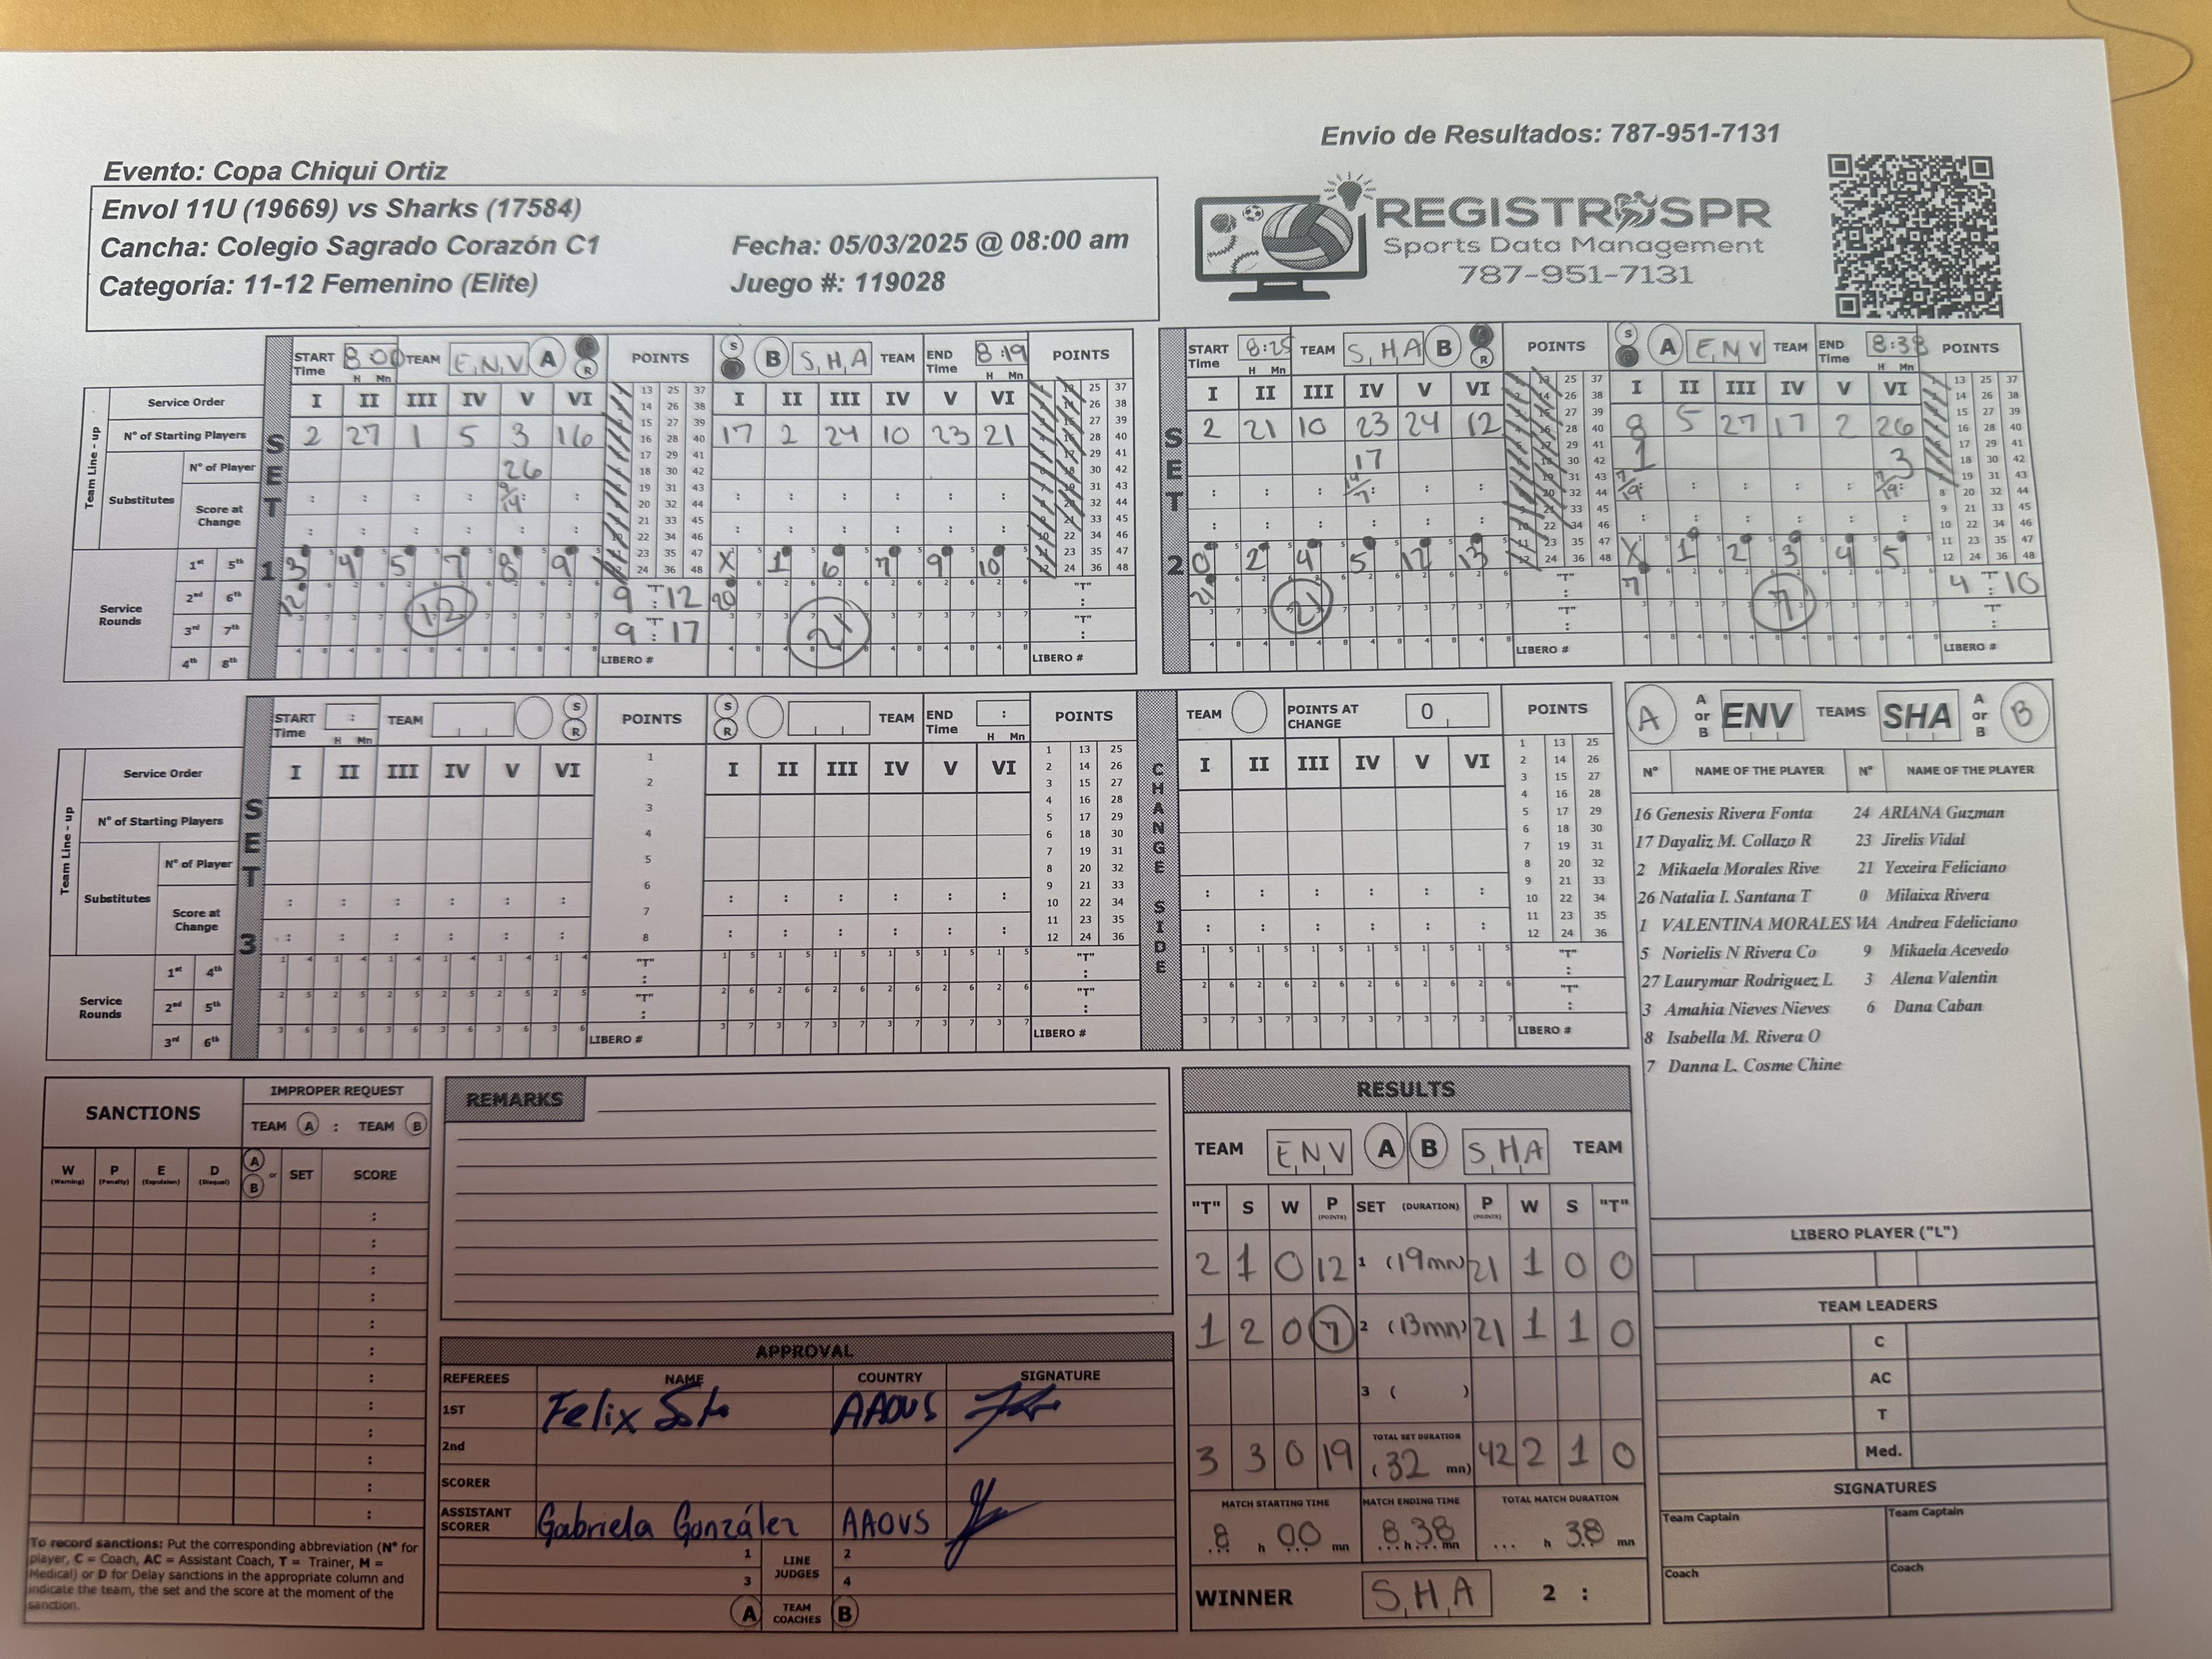 Envio de Resultados: 787-951-7131
Evento: Copa Chiqui Ortiz
Envol 11U (19669) vs Sharks (17584)
Cancha: Colegio Sagrado Corazón C1
Fecha: 05/03/2025 @ 08:00 am
Categoría: 11-12 Femenino (Elite)
Juego #: 119028
REGISTROSPR
Sports Data Management
787-951-7131
SET 1
START Time 8:00 H Mn TEAM E,N,V A S R POINTS S R B S,H,A TEAM END Time 8:19 H Mn POINTS
Team Line-up
Service Order I II III IV V VI I II III IV V VI
N° of Starting Players 2 27 1 5 3 16 17 2 24 10 23 21
Substitutes N° of Player 26
Score at Change 9/14
Service Rounds
1st 5th 3 4 5 7 8 9 X 1 6 7 9 10
2nd 6th 12 12 "T" 9 : 12 20 21 "T" :
3rd 7th "T" 9 : 17 "T" :
4th 8th LIBERO # LIBERO #
SET 2
START Time 8:25 H Mn TEAM S,H,A B S R POINTS S R A E,N,V TEAM END Time 8:38 H Mn POINTS
I II III IV V VI I II III IV V VI
2 21 10 23 24 12 8 5 27 17 2 26
17 1 3
14/7 7/19 7/19
0 2 4 5 12 13 X 1 2 3 4 5
21 21 "T" : 7 7 "T" 4 : 10
"T" : "T" :
LIBERO # LIBERO #
SET 3
START Time : H Mn TEAM S R POINTS S R TEAM END Time : H Mn POINTS
CHANGE SIDE
TEAM POINTS AT CHANGE 0 POINTS
Team Line-up
Service Order I II III IV V VI I II III IV V VI I II III IV V VI
N° of Starting Players
Substitutes N° of Player
Score at Change
Service Rounds
1st 4th "T" : "T" : "T" :
2nd 5th "T" : "T" : "T" :
3rd 6th LIBERO # LIBERO # LIBERO #
A A or B ENV TEAMS SHA A or B B
N° NAME OF THE PLAYER N° NAME OF THE PLAYER
16 Genesis Rivera Fonta 24 ARIANA Guzman
17 Dayaliz M. Collazo R 23 Jirelis Vidal
2 Mikaela Morales Rive 21 Yexeira Feliciano
26 Natalia I. Santana T 0 Milaixa Rivera
1 VALENTINA MORALES Andrea Fdeliciano
5 Norielis N Rivera Co 9 Mikaela Acevedo
27 Laurymar Rodriguez L 3 Alena Valentin
3 Amahia Nieves Nieves 6 Dana Caban
8 Isabella M. Rivera O
7 Danna L. Cosme Chine
LIBERO PLAYER ("L")
TEAM LEADERS
C
AC
T
Med.
SIGNATURES
Team Captain Team Captain
Coach Coach
SANCTIONS
IMPROPER REQUEST
TEAM A : TEAM B
W (Warning) P (Penalty) E (Expulsion) D (Disqual) A or B SET SCORE
To record sanctions: Put the corresponding abbreviation (N° for
player, C = Coach, AC = Assistant Coach, T = Trainer, M =
Medical) or D for Delay sanctions in the appropriate column and
indicate the team, the set and the score at the moment of the
sanction.
REMARKS
APPROVAL
REFEREES NAME COUNTRY SIGNATURE
1ST Felix Soto AAOVS
2nd
SCORER
ASSISTANT SCORER Gabriela González AAOVS
1 LINE JUDGES 2
3 4
A TEAM COACHES B
RESULTS
TEAM E,N,V A B S,H,A TEAM
"T" S W P (POINTS) SET (DURATION) P (POINTS) W S "T"
2 1 0 12 1 (19mn) 21 1 0 0
1 2 0 7 2 (13mn) 21 1 1 0
3 ( )
TOTAL SET DURATION
3 3 0 19 (32 mn) 42 2 1 0
MATCH STARTING TIME MATCH ENDING TIME TOTAL MATCH DURATION
8 h 00 mn 8 h 38 mn h 38 mn
WINNER S,H,A 2 :